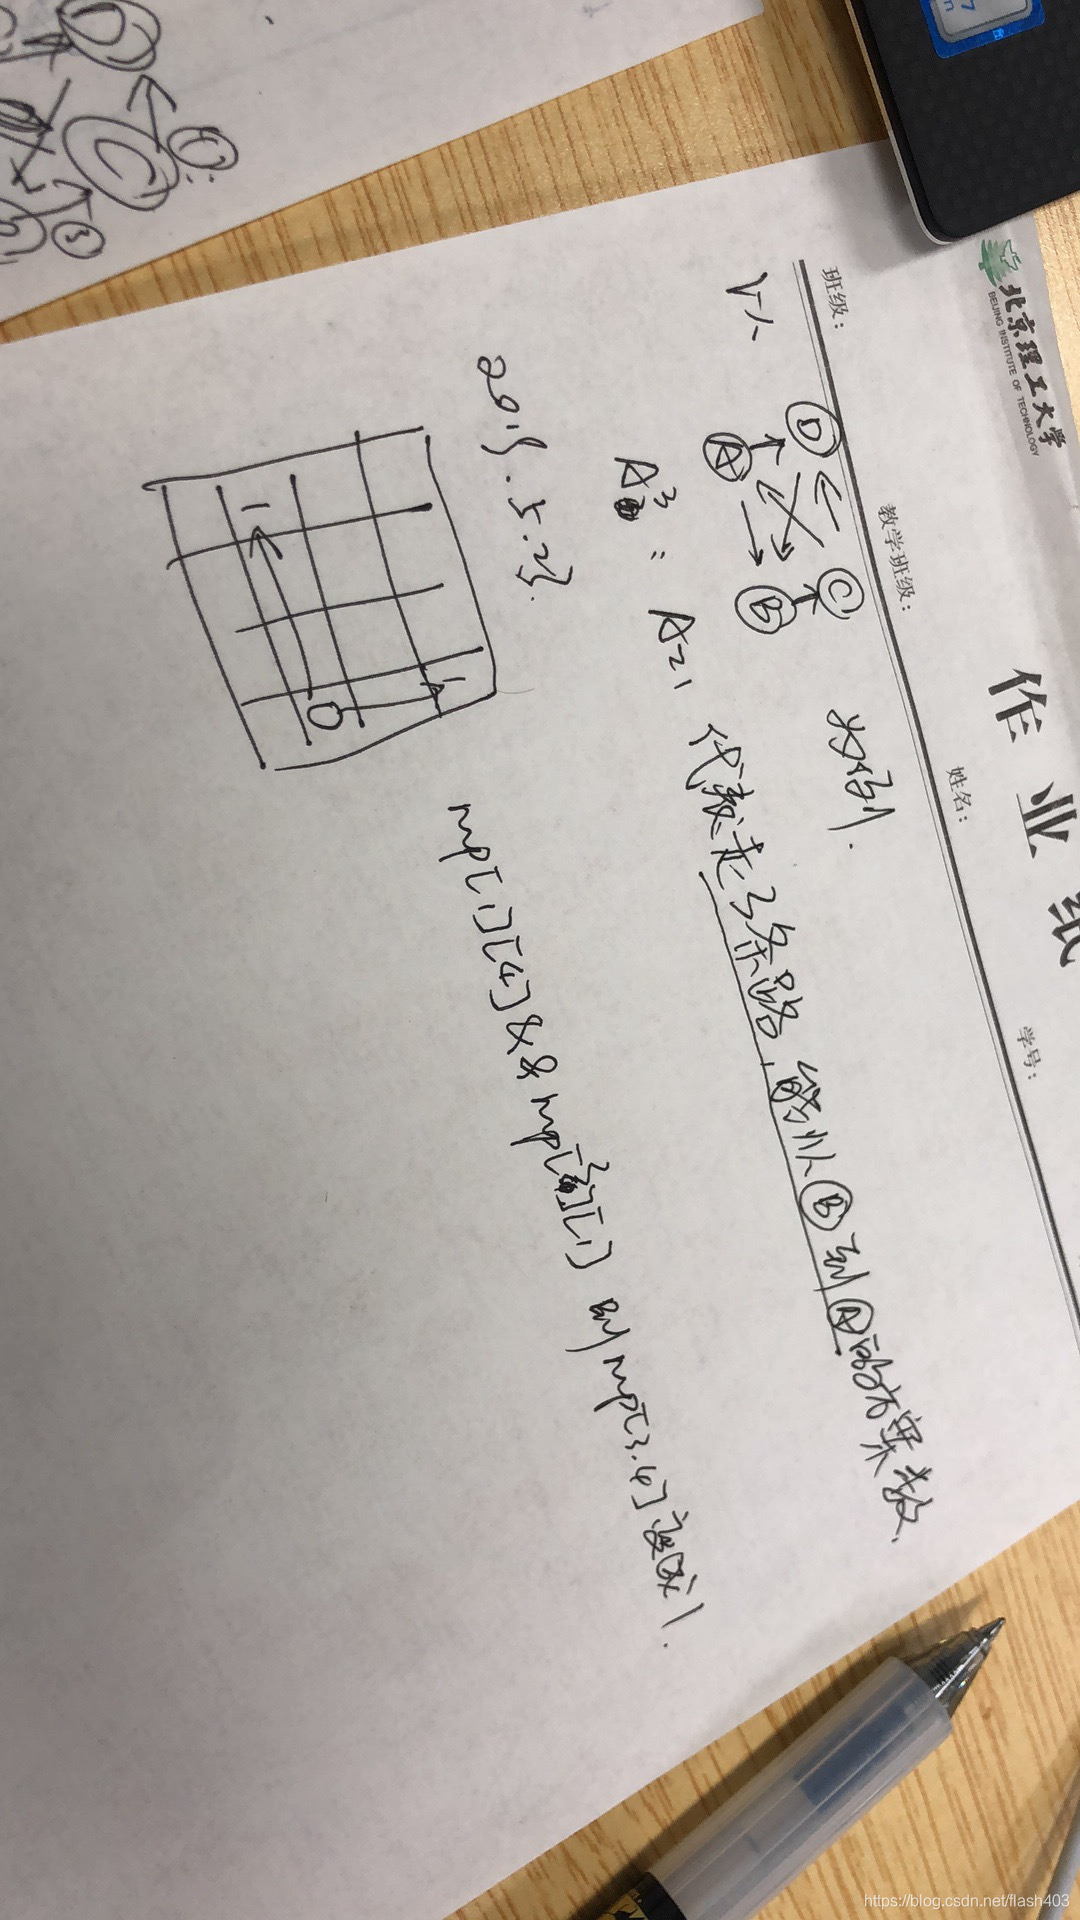 北京理工大学
BEIJING INSTITUTE OF TECHNOLOGY
作业纸
班级： 教学班级： 姓名： 学号：
D
C
A
B
A³： A21 代表走3条路，能从B到A的方案数
2019.5.23.
1
1
0
mp[1][4]&&mp[3][1] 则mp[3.4]变成1.
https://blog.csdn.net/flash403